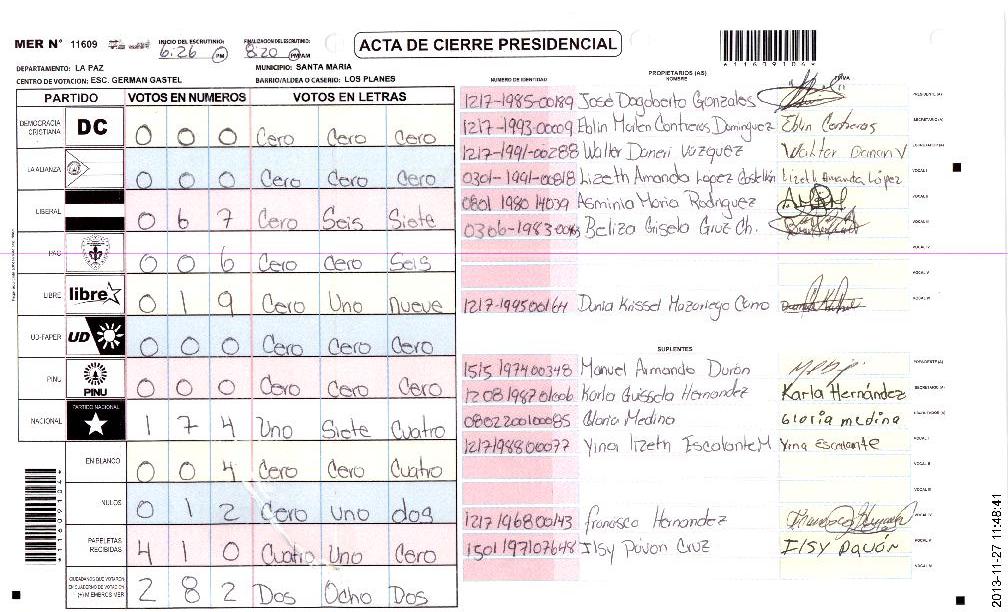 MER N° 11609 INICIO DEL ESCRUTINIO: 6:26 PM FINALIZACION DEL ESCRUTINIO: 8:20 PM AM
ACTA DE CIERRE PRESIDENCIAL
*116091046*
DEPARTAMENTO: LA PAZ MUNICIPIO: SANTA MARIA
CENTRO DE VOTACION: ESC. GERMAN GASTEL BARRIO/ALDEA O CASERIO: LOS PLANES
PARTIDO VOTOS EN NUMEROS VOTOS EN LETRAS
DEMOCRACIA CRISTIANA DC 0 0 0 Cero Cero Cero
LA ALIANZA 0 0 0 Cero Cero Cero
LIBERAL 0 6 7 Cero Seis Siete
PAC 0 0 6 Cero Cero Seis
LIBRE libre 0 1 9 Cero Uno nueve
UD-FAPER UD 0 0 0 Cero Cero Cero
PINU PINU 0 0 0 Cero Cero Cero
NACIONAL PARTIDO NACIONAL 1 7 4 Uno Siete Cuatro
EN BLANCO 0 0 4 Cero Cero Cuatro
NULOS 0 1 2 Cero uno dos
PAPELETAS RECIBIDAS 4 1 0 Cuatro Uno Cero
CIUDADANOS QUE VOTARON EN CUADERNO DE VOTACION (+) MIEMBROS MER 2 8 2 Dos Ocho Dos
PROPIETARIOS (AS)
NUMERO DE IDENTIDAD NOMBRE FIRMA
1217-1985-00189 José Dagoberto Gonzales PRESIDENTE(A)
1217-1993-00009 Eblin Mailen Contreras Dominguez Eblin Contreras SECRETARIO(A)
1217-1991-00288 Walter Daneri Vazquez Walter Daneri V ESCRUTADOR(A)
0301-1991-00818 Lizeth Amanda Lopez Castellón Lizeth Amanda López VOCAL I
0801 1980 14039 Asminia Maria Rodriguez VOCAL II
0306-1983- Beliza Gisela Cruz Ch. VOCAL III
VOCAL IV
VOCAL V
1217-199500164 Dunia Krissel Mazariego Cano VOCAL VI
SUPLENTES
1515197400348 Manuel Armando Durón PRESIDENTE(A)
1208198701006 Karla Guissela Hernandez Karla Hernández SECRETARIO(A)
0802200100085 Gloria Medina Gloria medina ESCRUTADOR(A)
1217198800077 Yina lizeth Escalante M Yina Escalante VOCAL I
VOCAL II
VOCAL III
1217196800143 francisco Hernandez VOCAL IV
1501197107648 Ilsy Pavon Cruz Ilsy Pavón VOCAL V
VOCAL VI
*116091046*
2013-11-27 11:48:41